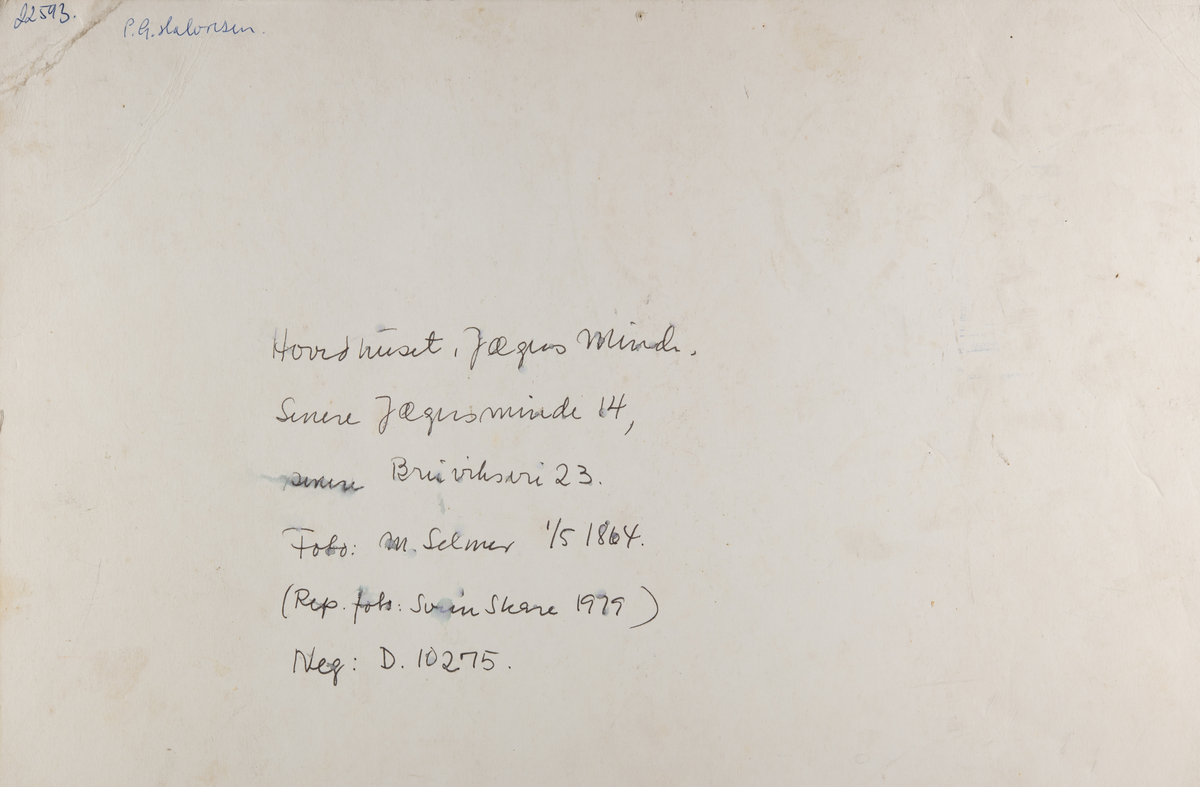 22593.
P. G. Halvorsen.
Hovedhuset, Jægers Minde.
Senere Jægersminde 14,
senere Breivikvei 23.
Foto: M. Selmer 1/5 1864.
(Rep. foto: Svein Skare 1979)
Neg: D. 10275.